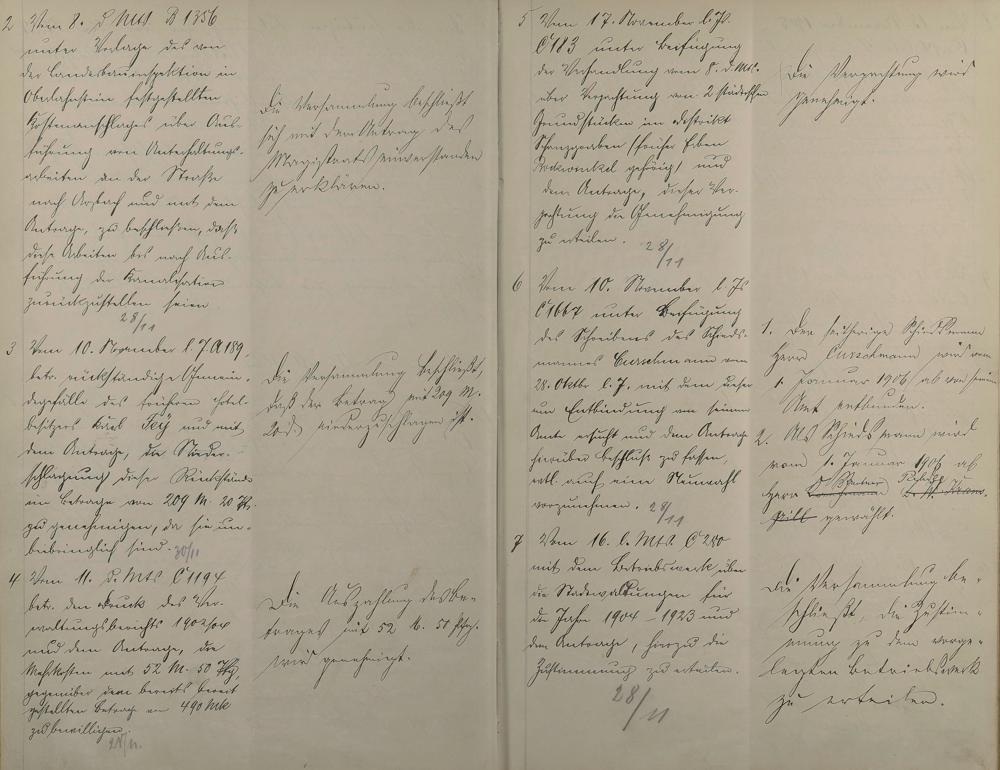 2 Vom 8. d. Mts. B 1356
unter Vorlage des von
der Landesbauinspektion in
Oberlahnstein festgestellten
Kostenanschlages über Aus-
führung von Unterhaltungs-
arbeiten an der Straße
nach Arzbach und mit dem
Antrage, zu beschließen, daß
diese Arbeiten bis nach Aus-
führung der Kanalisation
zurückzustellen seien
28/11
Die Versammlung beschließt
sich mit dem Antrag des
Magistrats einverstanden
zu erklären.
3 Vom 10. November l. J. A 189,
betr. rückständige Gemein-
degefälle des früheren Hotel-
besitzers Karl und mit
dem Antrage, die Nieder-
schlagung dieser Rückstände
im Betrage von 209 M. 20 Pfg.
zu genehmigen, da sie un-
beibringlich sind. 30/11
Die Versammlung beschließt,
daß der Betrag mit 209 M.
20 niederzuschlagen ist.
4 Vom 11. d. Mts C 1194
betr. den Druck des Ver-
waltungsberichts 1902/04
und dem Antrage, die
Mehrkosten mit 52 M. 50 Pfg,
gegenüber dem bereits bereit
gestellten Betrage von 490 Mk
zu bewilligen.
28/11.
Die Auszahlung des Be-
trages mit 52 M. 50 Pfg.
wird genehmigt.
5 Vom 17. November l. Js.
C 1183 unter Beifügung
der Verhandlung vom 8. d. Mts.
über Verpachtung von 2 städtischen
Grundstücken im Distrikt
Schanzgraben (früher Erben
gehörig) und
dem Antrage, dieser Ver-
pachtung die Genehmigung
zu erteilen. 28/11
Die Verpachtung wird
genehmigt.
6 Vom 10. November l. Js
C 1667 unter Beifügung
des Schreibens des Schieds-
mannes Curschmann vom
28. Oktbr l. J. mit dem dieser
um Entbindung von seinem
Amte ersucht und dem Antrage
hierüber Beschluß zu fassen,
evtl. auch eine Neuwahl
vorzunehmen. 28/11
1. Der seitherige Schiedsmann
Herr Curschmann wird vom
1. Januar 1906 ab von seinem
Amt entbunden.
2. Als Schiedsmann wird
vom 1. Januar 1906 ab
Herr
gewählt.
7 Vom 16. l. Mts. C 280
mit dem Betriebswerk über
die Stadtwaldungen für
die Jahre 1904 - 1923 und
dem Antrage, hierzu die
Zustimmung zu erteilen.
28/11
Die Versammlung be-
schließt, die Zustim-
mung zu dem vorge-
legten Betriebswerk
zu erteilen.